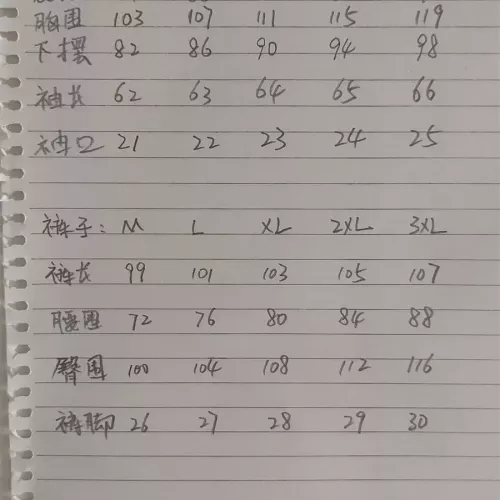 胸围 103 107 111 115 119
下摆 82 86 90 94 98
袖长 62 63 64 65 66
袖口 21 22 23 24 25
裤子: M L XL 2XL 3XL
裤长 99 101 103 105 107
腰围 72 76 80 84 88
臀围 100 104 108 112 116
裤脚 26 27 28 29 30